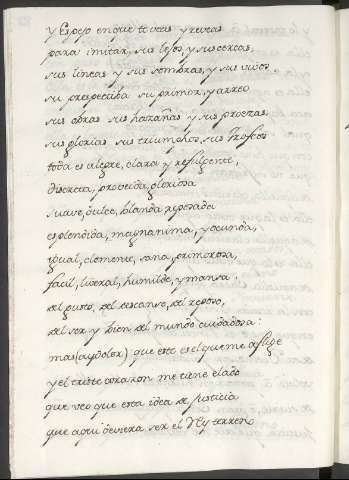 y Espejo en que te veas y reveas
para imitar, sus lejos, y sus cercas,
sus lineas y sus sombras, y sus visos
su prespectiba su primor, y arreo
sus obras sus hazañas y sus proezas
sus glorias sus triumphos, sus Trofeos
toda es alegre, clara y refulgente,
discreta, probeida, gloriosa
suave, dulce, blanda reposada
esplendida, magnanima, y jocunda,
ygual, clemente, sana, primorosa,
facil, liberal, humilde, y mansa,
del gusto, del descanso, del reposo,
del ser y bien del mundo cuidadosa:
mas (ay dolor) que este es el que me aflige
y el triste corazon me tiene elado
que veo que esta idea de justicia
que aqui deviera ser el Rey terreno